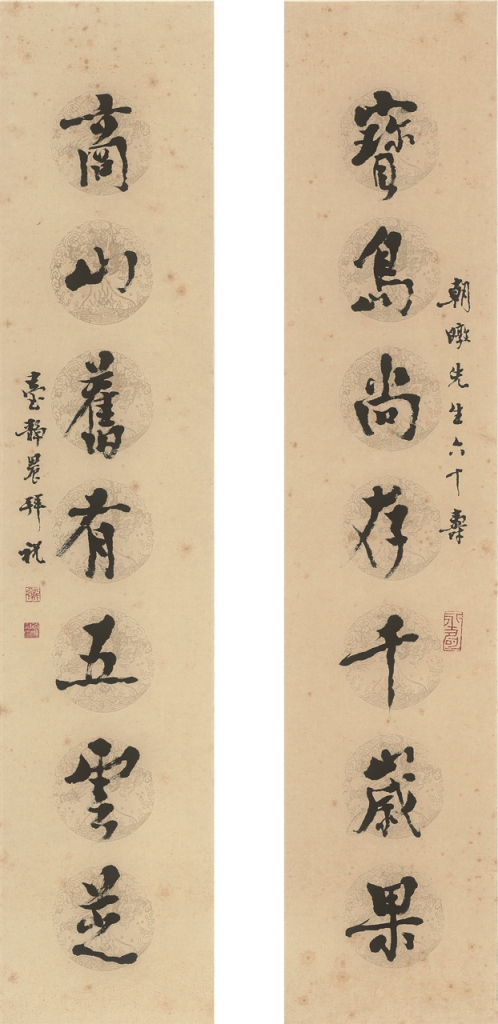 朝暾先生六十壽
寶島尚存千歲果
商山舊有五雲芝
臺靜農拜祝